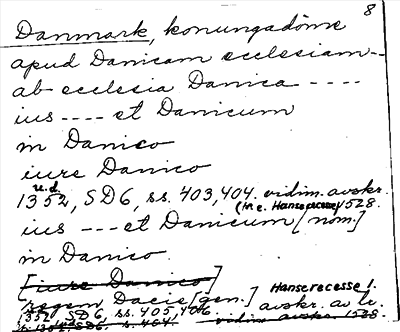 8
Danmark, konungadöme
apud Danicam ecclesiam--
ab ecclesia Danica ----
ius ---- et Danicum
in Danico
iure Danico
u.d.
1352, SD6, ss. 403, 404. vidim. avskr.
(in e. Hanserecesse) 1528.
ius --- et Danicum [nom.]
in Danico
[iure Danico]
regem Dacie [gen.] Hanserecesse 1.
1352, SD6, ss. 405, 406 avskr. av le.
SD6, s. 404. vidim. avskr. 1528.